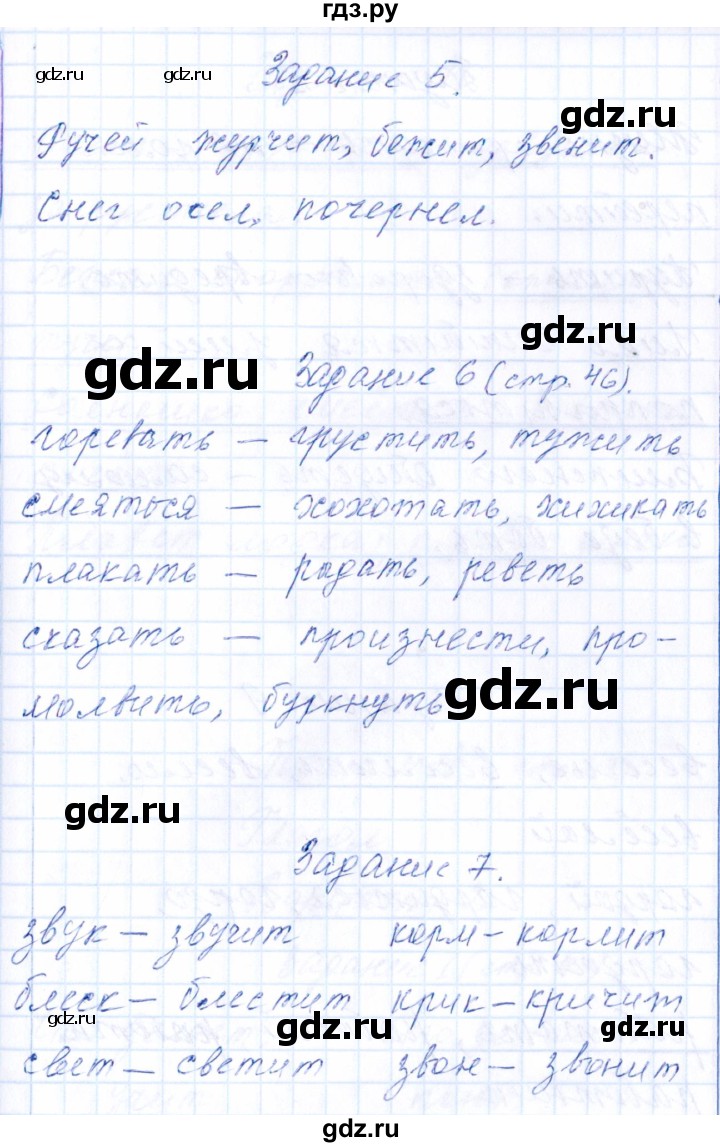 гдз.ру
gdz.ru gdz.ru Задание 5.
gdz.ru
Ручей журчит, бежит, звенит.
Снег осел, почернел.
gdz.ru
gdz.ru Задание 6 (стр. 46).
горевать — грустить, тужить
смеяться — хохотать, хихикать
плакать — рыдать, реветь
сказать — произнести, про-
молвить, буркнуть
gdz.ru
gdz.ru
Задание 7.
звук — звучит корм — кормит
блеск — блестит крик — кричит
gdz.ru gdz.ru gdz.ru
свет — светит звон — звонит
gdz.ru